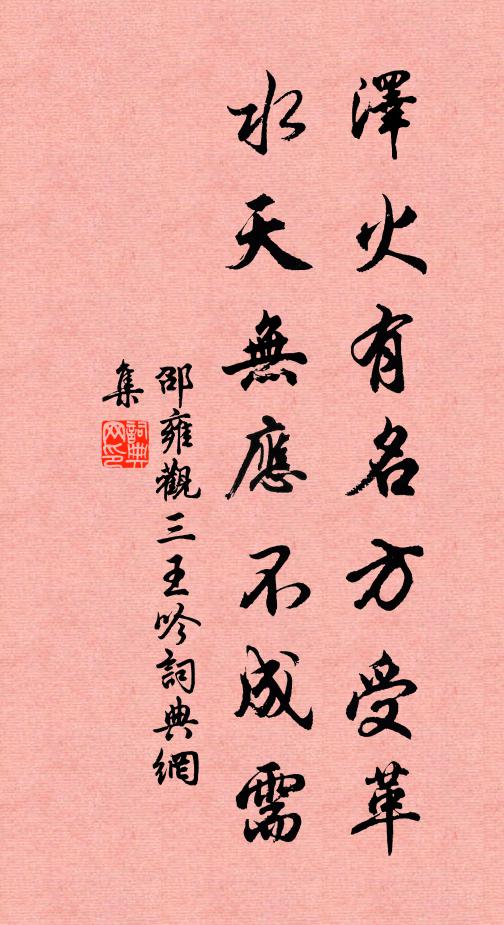 澤火有名方受革
水天無應不成需
邵雍觀三王吟詞典網
集
詞典
网印